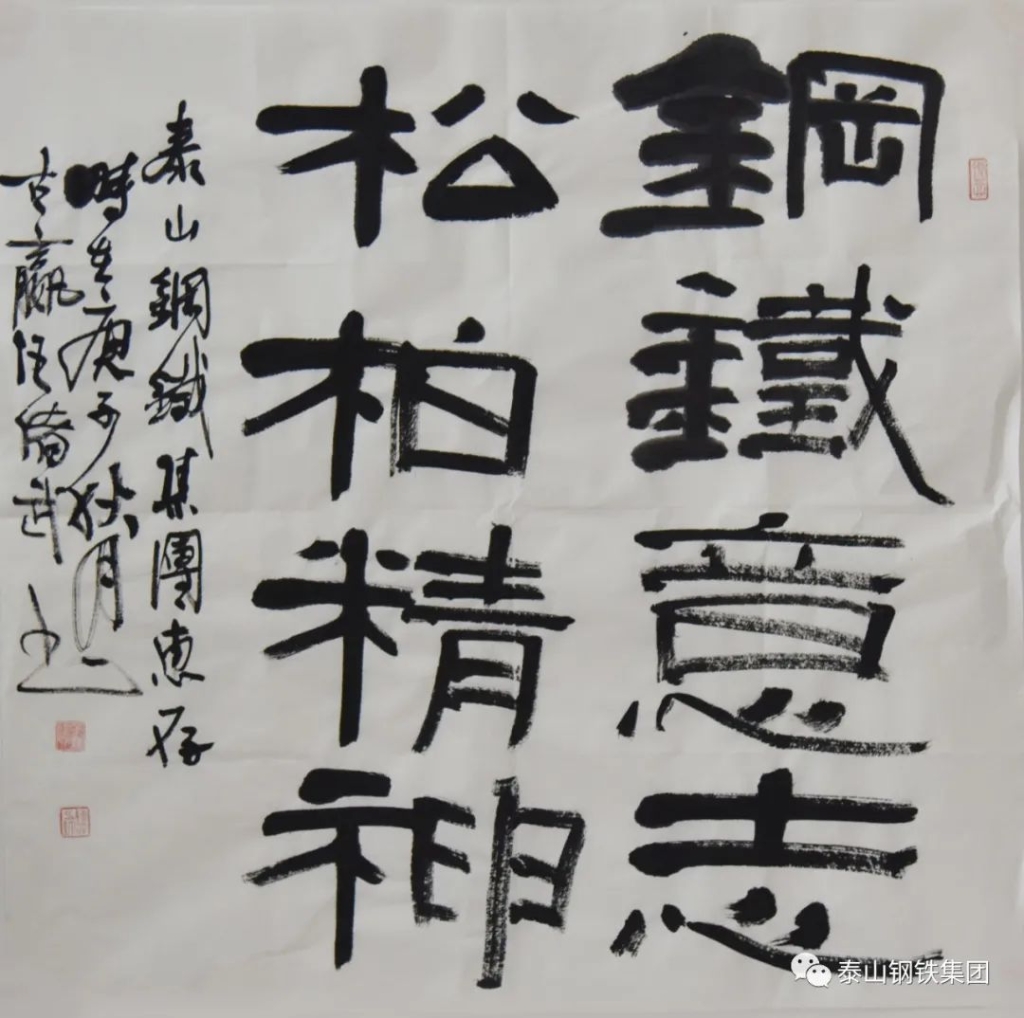 鋼鐵意志
松柏精神
泰山鋼鐵集團惠存
時在庚子秋月
古嬴任倫武書
泰山钢铁集团